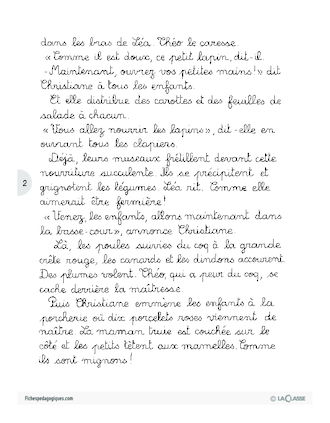 dans les bras de Léa. Théo le caresse.
« Comme il est doux, ce petit lapin, dit-il.
- Maintenant, ouvrez vos petites mains ! » dit
Christiane à tous les enfants.
Et elle distribue des carottes et des feuilles de
salade à chacun.
« Vous allez nourrir les lapins », dit-elle en
ouvrant tous les clapiers.
Déjà, leurs museaux frétillent devant cette
nourriture succulente. Ils se précipitent et
grignotent les légumes. Léa rit. Comme elle
2
aimerait être fermière !
« Venez, les enfants, allons maintenant dans
la basse-cour », annonce Christiane.
Là, les poules suivies du coq à la grande
crête rouge, les canards et les dindons accourent.
Des plumes volent. Théo, qui a peur du coq, se
cache derrière la maîtresse.
Puis Christiane emmène les enfants à la
porcherie où dix porcelets roses viennent de
naître. La maman truie est couchée sur le
côté et les petits tètent aux mamelles. Comme
ils sont mignons !
Fichespedagogiques.com
© LA CLASSE